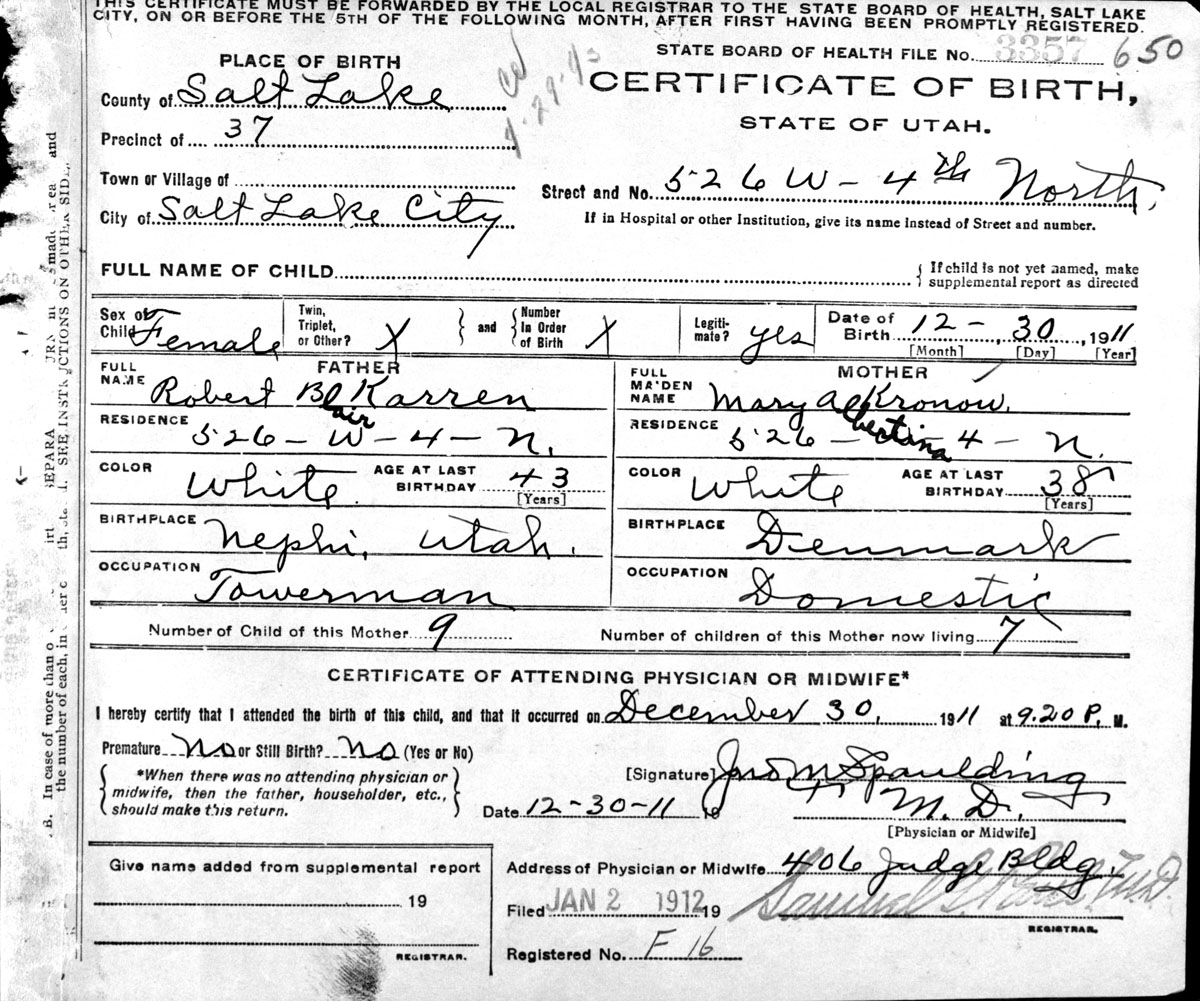 THIS CERTIFICATE MUST BE FORWARDED BY THE LOCAL REGISTRAR TO THE STATE BOARD OF HEALTH, SALT LAKE
CITY, ON OR BEFORE THE 5TH OF THE FOLLOWING MONTH, AFTER FIRST HAVING BEEN PROMPTLY REGISTERED.
STATE BOARD OF HEALTH FILE No. 3357 650
PLACE OF BIRTH
CERTIFICATE OF BIRTH,
STATE OF UTAH.
County of Salt Lake
Precinct of 37
Town or Village of
Street and No. 526 W - 4th North.
City of Salt Lake City
If in Hospital or other Institution, give its name instead of Street and number.
FULL NAME OF CHILD { If child is not yet named, make
supplemental report as directed
Sex of Child Female
Twin, Triplet, or Other? X } and { Number In Order of Birth X
Legiti-mate? yes
Date of Birth 12 - 30, 1911
[Month] [Day] [Year]
FATHER
FULL NAME Robert Blair Karren
RESIDENCE 526 - W - 4 - N.
COLOR White AGE AT LAST BIRTHDAY 43
[Years]
BIRTHPLACE Nephi, Utah.
OCCUPATION Towerman
MOTHER
FULL MAIDEN NAME Mary Albertina Kronow.
RESIDENCE 526 - 4 - N.
COLOR White AGE AT LAST BIRTHDAY 38
[Years]
BIRTHPLACE Denmark
OCCUPATION Domestic
Number of Child of this Mother 9 Number of children of this Mother now living 7
CERTIFICATE OF ATTENDING PHYSICIAN OR MIDWIFE*
I hereby certify that I attended the birth of this child, and that it occurred on December 30, 1911 at 9.20 P. M.
Premature No or Still Birth? No (Yes or No)
{ *When there was no attending physician or
midwife, then the father, householder, etc.,
should make this return. }
[Signature] Jno M Spaulding
M. D.
[Physician or Midwife]
Date 12-30-11 19
Give name added from supplemental report
19
REGISTRAR.
Address of Physician or Midwife 406 Judge Bldg.
Filed JAN 2 1912 19
M.D.
REGISTRAR.
Registered No. F 16
B. In case of more than
the number of each, in
SEE INSTRUCTIONS ON OTHER SIDE.